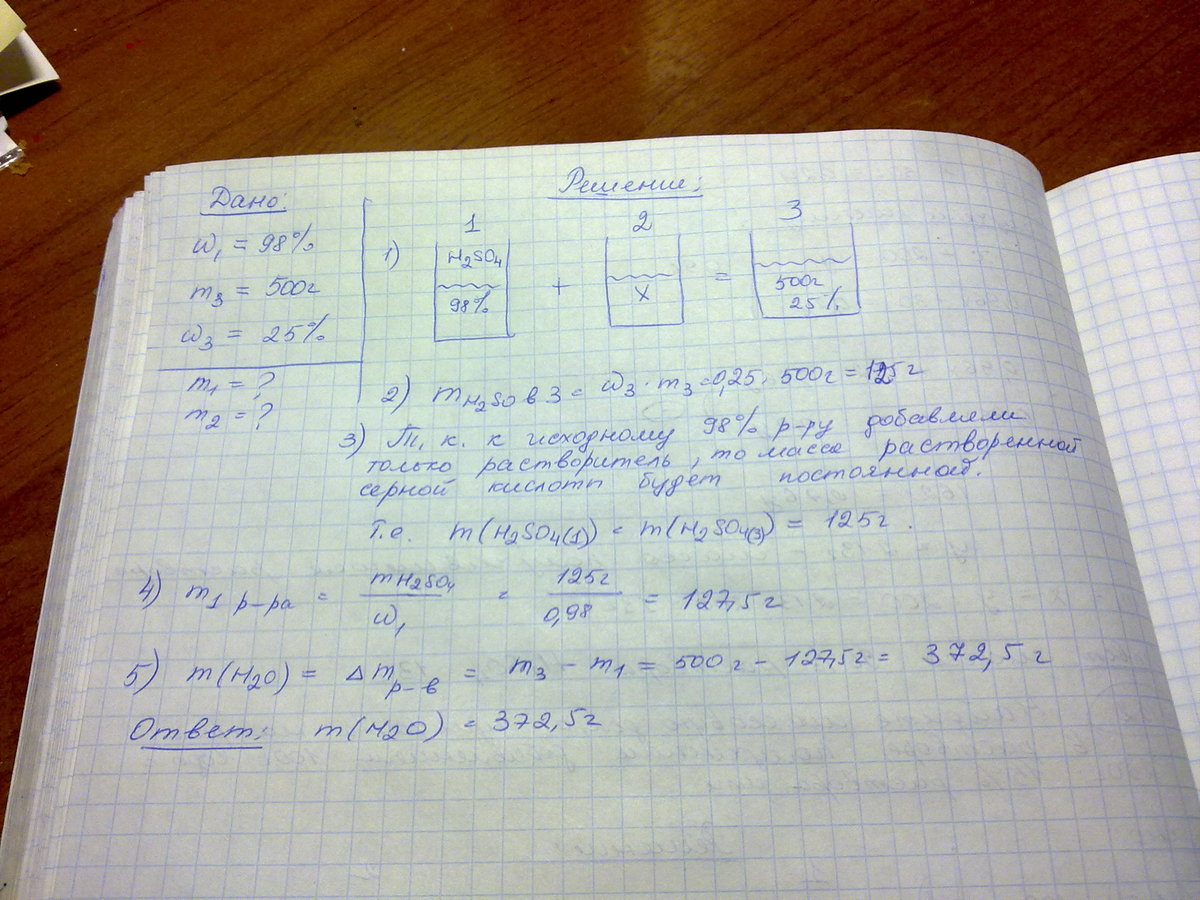 Дано:
ω₁ = 98%
m₃ = 500г
ω₃ = 25%
m₁ = ?
m₂ = ?
Решение:
1) 1 2 3
H₂SO₄ 98% + X = 500г 25%
2) m H₂SO в 3 = ω₃ · m₃ = 0,25 · 500г = 125г
3) Т. к. к исходному 98% р-ру добавляли
только растворитель, то масса растворенной
серной кислоты будет постоянной.
Т.е. m(H₂SO₄(1)) = m(H₂SO₄(3)) = 125г.
4) m₁ р-ра = mH₂SO₄ / ω₁ = 125г / 0,98 = 127,5г
5) m(H₂O) = Δm р-в = m₃ − m₁ = 500г − 127,5г = 372,5г
Ответ: m(H₂O) = 372,5г